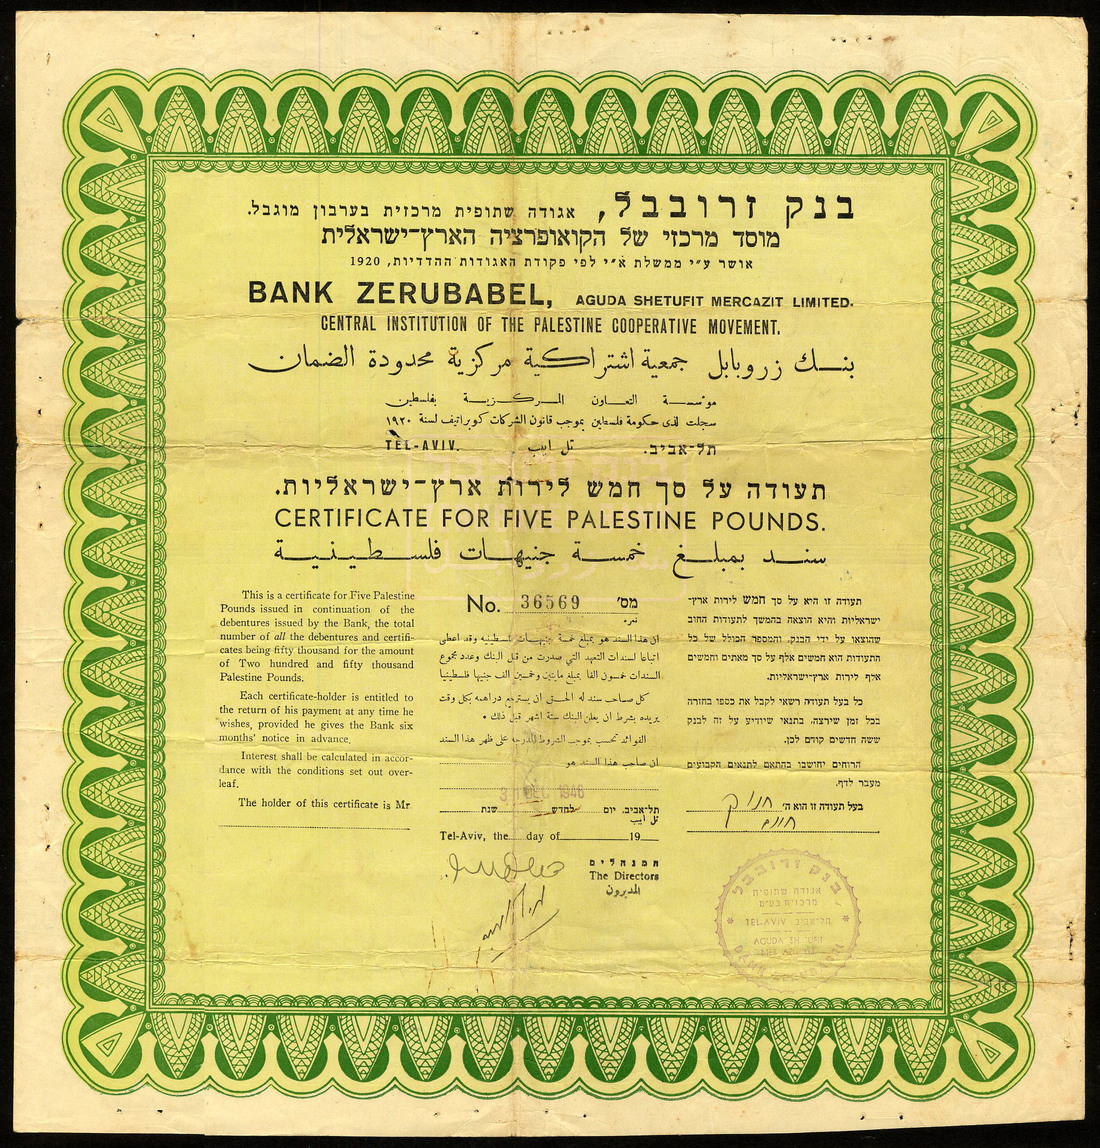 בנק זרובבל, אגודה שתופית מרכזית בערבון מוגבל.
מוסד מרכזי של הקואופרציה הארץ-ישראלית
אושר ע״י ממשלת א״י לפי פקודת האגודות ההדדיות, 1920
BANK ZERUBABEL, AGUDA SHETUFIT MERCAZIT LIMITED.
CENTRAL INSTITUTION OF THE PALESTINE COOPERATIVE MOVEMENT.
بنك زروبابل جمعية اشتراكية مركزية محدودة الضمان
مؤسسة التعاون المركزية بفلسطين
سجلت لدى حكومة فلسطين بموجب قانون الشركات كوبراتيف لسنة ١٩٢٠
TEL-AVIV. تل ابيب תל-אביב.
תעודה על סך חמש לירות ארץ-ישראליות.
CERTIFICATE FOR FIVE PALESTINE POUNDS.
سند بمبلغ خمسة جنيهات فلسطينية
This is a certificate for Five Palestine
Pounds issued in continuation of the
debentures issued by the Bank, the total
number of all the debentures and certifi-
cates being fifty thousand for the amount
of Two hundred and fifty thousand
Palestine Pounds.
Each certificate-holder is entitled to
the return of his payment at any time he
wishes, provided he gives the Bank six
months' notice in advance.
Interest shall be calculated in accor-
dance with the conditions set out over-
leaf.
The holder of this certificate is Mr
No. 36569 מס'
نمره
ان هذا السند هو بمبلغ خمسة جنيهات فلسطينيه وقد اعطى
اتباعا لسندات التعهد التي صدرت من قبل البنك وعدد مجموع
السندات خمسون الفا بمبلغ مايتين وخمسين الف جنيها فلسطينيا
كل صاحب سند له الحق ان يسترجع دراهمه بكل وقت
يريده بشرط ان يعلن البنك ستة اشهر قبل ذلك.
الفوائد تحسب بموجب الشروط المدرجه على ظهر هذا السند
ان صاحب هذا السند هو
31 DEC 1946
תל-אביב, יום לחדש שנת
تل ابيب
Tel-Aviv, the day of 19
המנהלים
The Directors
المديرون
תעודה זו היא על סך חמש לירות ארץ-
ישראליות והיא הוצאה בהמשך לתעודות החוב
שהוצאו על ידי הבנק, והמספר הכולל של כל
התעודות הוא חמשים אלף על סך מאתים וחמשים
אלף לירות ארץ-ישראליות.
כל בעל תעודה רשאי לקבל את כספו בחזרה
בכל זמן שירצה, בתנאי שיודיע על זה לבנק
ששה חדשים קודם לכן.
הרוחים יחושבו בהתאם לתנאים הקבועים
מעבר לדף.
בעל תעודה זו הוא ה'
בנק זרובבל
אגודה שתופית
מרכזית בע״מ
TEL-AVIV תל-אביב